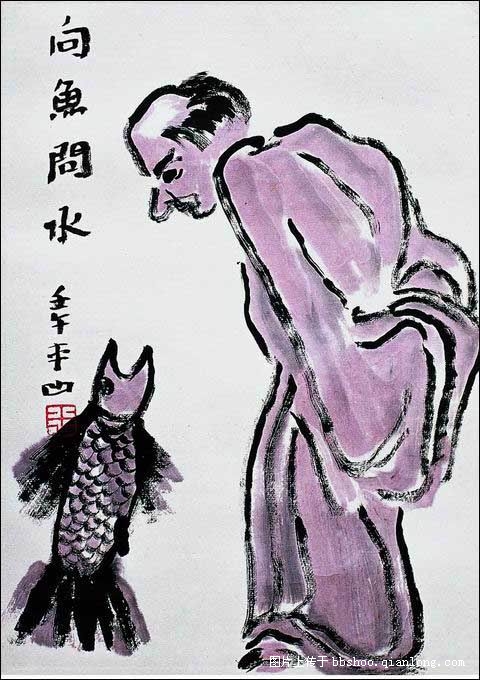 向魚問水
壬午平山
图片上传于 bbshoo.qianlong.com